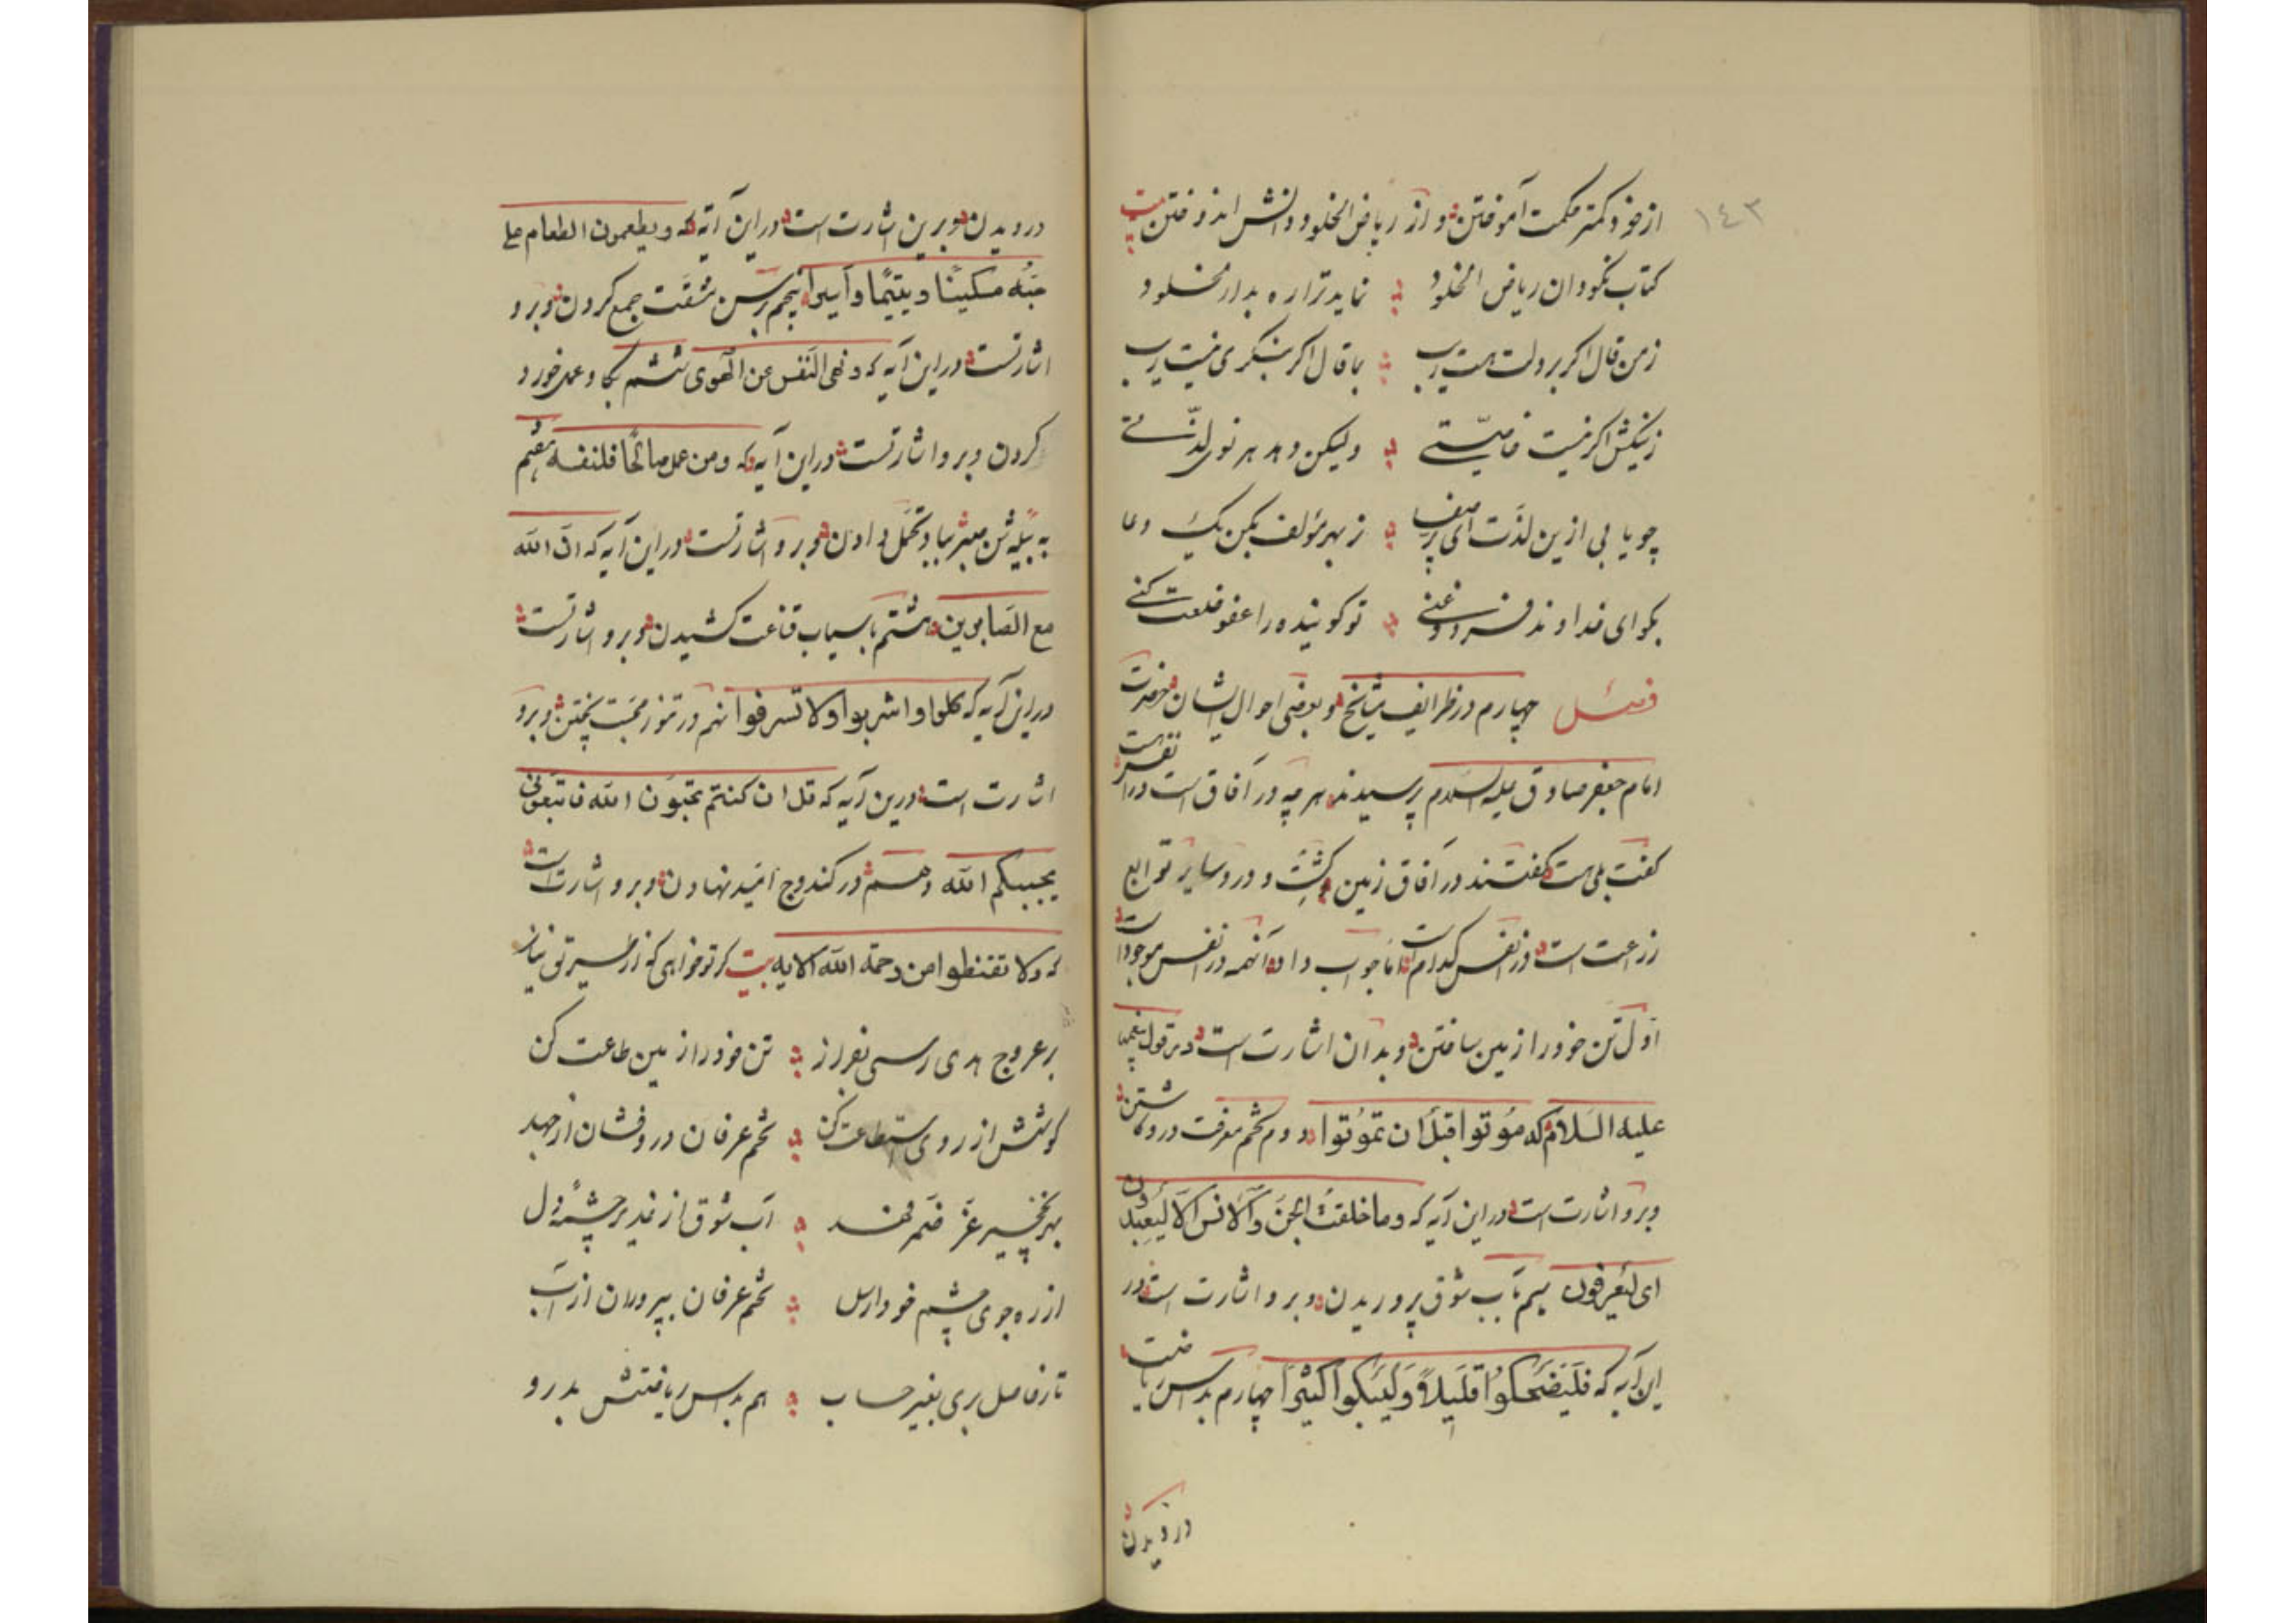 ١٤٣
از خود کمتر حکمت آموختن و از ریاض الخلود دانش اندوختن بیت
کتاب نکو دان ریاض الخلود نماید ترا ره بدار الخلود
زمن قال اکر بر دلت هست ریب بما قال اکر بنکری نیست ریب
ز نیکیش اکر نیست خاصیّتی ولیکن دهد هر نوی لذّتی
چو یابی ازین لذّت ای پر صفا ز بهر مؤلف بکن یک دعا
بکو ای خداوند فرد و غنی تو کوینده را عفو خلعت کنی
فصل چهارم در ظرایف مشایخ و بعضی احوال ایشان حضرت
امام جعفر صادق علیه السلام پرسیدند هر چه در آفاق است در انفس هست
کفت بلی هست کفتند در آفاق زمین و کشت و درو سایر توابع
زراعت است در انفس کدام است امام جواب داد آنهمه در انفس موجود است
اوّل تن خود را زمین ساختن و بدان اشارت است در قول پیغمبر
علیه السلام که مُوتوا قبلَ ان تمُوتُوا دوم تخم معرفت درو کاشتن
و برو اشارت است در این آیه که و ما خلقتُ الجنَ و الانس الّا لیعبدون
ای لیعرفون سیم بآب شوق پروریدن و برو اشارت است در
این آیه که فَلیَضحَکُوا قَلیلاً وَلیَبکُوا کثیراً چهارم بداس ریاضت
درویدن
درویدن و برین اشارت است در این آیه که و یطعمون الطعام علی
حبّه مسکینًا و یتیمًا و اسیرا پنجم برسن مشقّت جمع کردن و برو
اشارتست در این آیه که و نهی النّفس عن الهوی ششم بکاو عمل خورد
کردن و برو اشارتست در این آیه که و من عمل صالحًا فلنفسه هفتم
به بیله شن مبشر بباد تحمّل دادن و برو اشارتست در این آیه که انّ الله
مع الصّابرین هشتم باسیاب قناعت کشیدن و برو اشارتست
در این آیه که کلوا و اشربوا و لا تسرفوا نهم در تنور محبّت پختن و برو
اشارت است درین آیه که قل ان کنتم تحبّون الله فاتبعونی
یحببکم الله دهم در کندوج امّید نهادن و برو اشارت است
که و لا تقنطوا من رحمة الله الایه بیت کر تو خواهی که از طریق نیاز
بر عروج هدی رسی بفراز تن خود را زمین طاعت کن
کوشش از روی استطاعت کن تخم عرفان درو فشان از جهد
آب شوق از غدیر چشمهٔ دل
از ره جوی چشم خود تخم عرفان بپروران از آب
تا بری بغیر حساب هم بداس ریاضتش بدرو